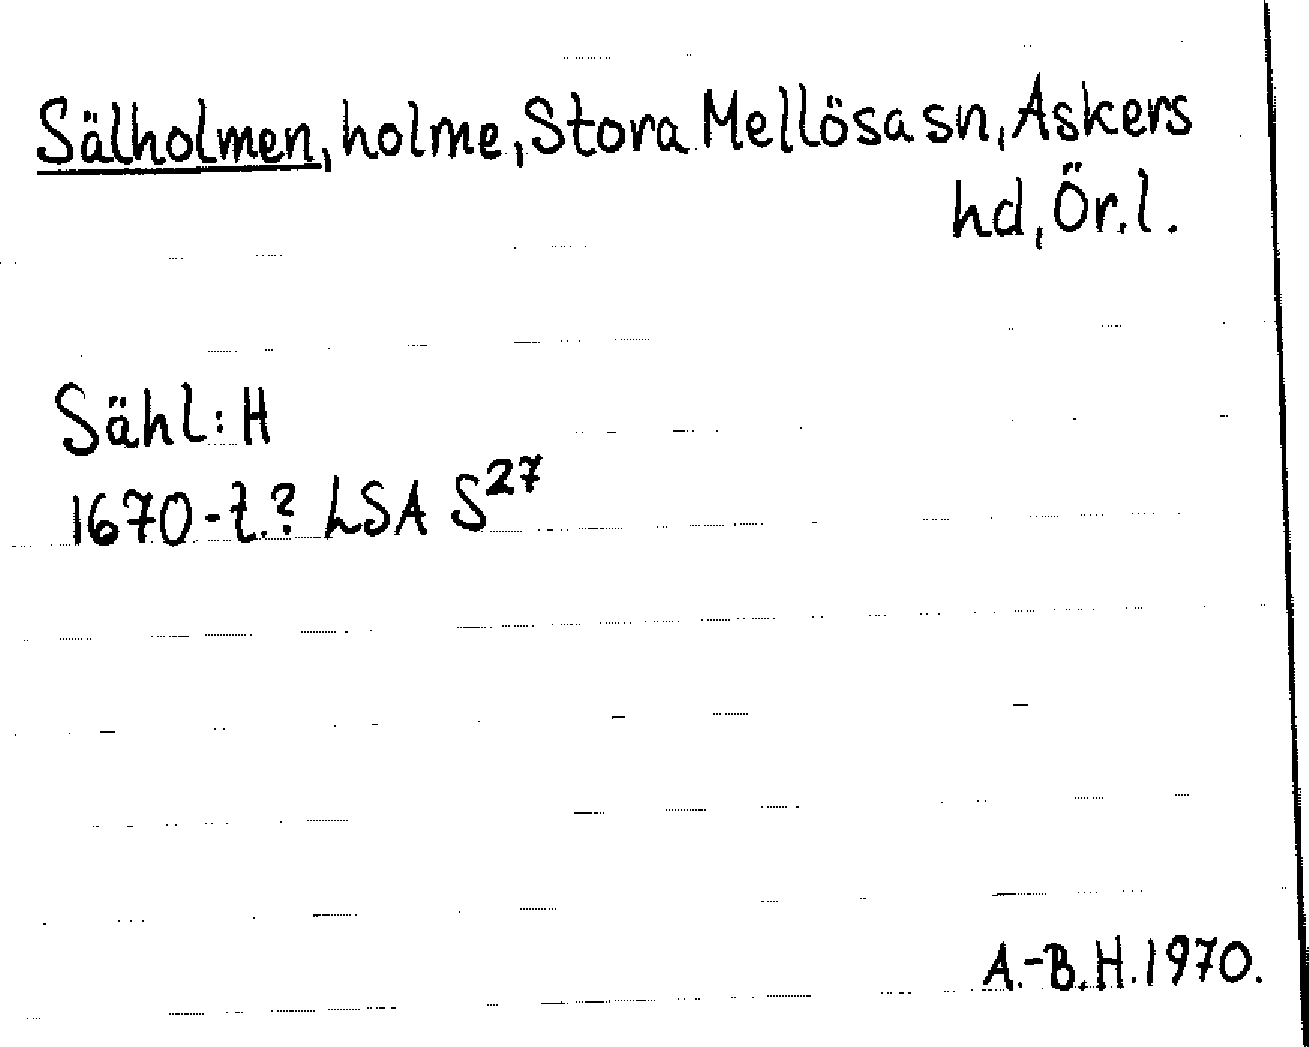 Sälholmen, holme, Stora Mellösa sn, Askers
hd, Ör.l.
Sähl:H
1670-t.? LSA S27
A.-B.H. 1970.